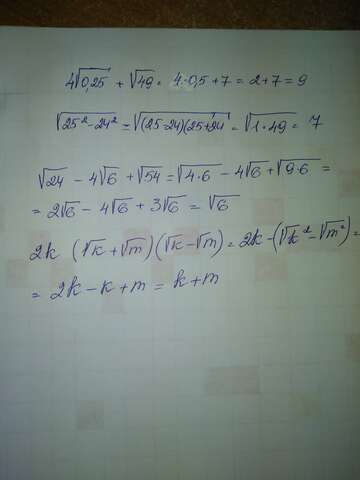 4√0,25 + √49 = 4·0,5+7 = 2+7 = 9
√25²-24² = √(25-24)(25+24 = √1·49 = 7
√24 - 4√6 + √54 = √4·6 - 4√6 + √9·6 =
= 2√6 - 4√6 + 3√6 = √6
2k (√k + √m)(√k - √m) = 2k - (√k² - √m²) =
= 2k - k + m = k + m